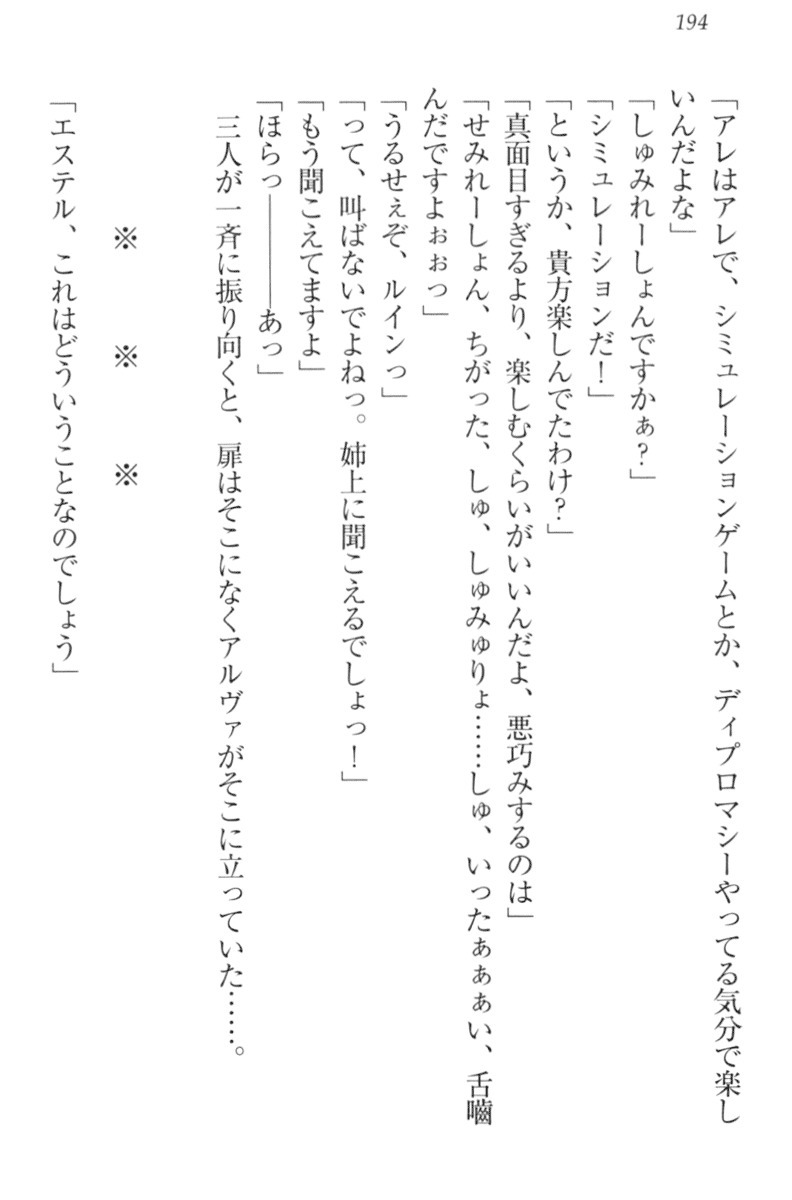 194
「アレはアレで、シミュレーションゲームとか、ディプロマシーやってる気分で楽し
いんだよな」
「しゅみれーしょんですかぁ？」
「シミュレーションだ！」
「というか、貴方楽しんでたわけ？」
「真面目すぎるより、楽しむくらいがいいんだよ、悪巧みするのは」
「せみれーしょん、ちがった、しゅ、しゅみゅりょ……しゅ、いったぁぁぁい、舌嚙
んだですよぉぉっ」
「うるせぇぞ、ルインっ」
「って、叫ばないでよねっ。姉上に聞こえるでしょっ！」
「もう聞こえてますよ」
「ほらっ――――あっ」
　三人が一斉に振り向くと、扉はそこになくアルヴァがそこに立っていた……。
※　※　※
「エステル、これはどういうことなのでしょう」